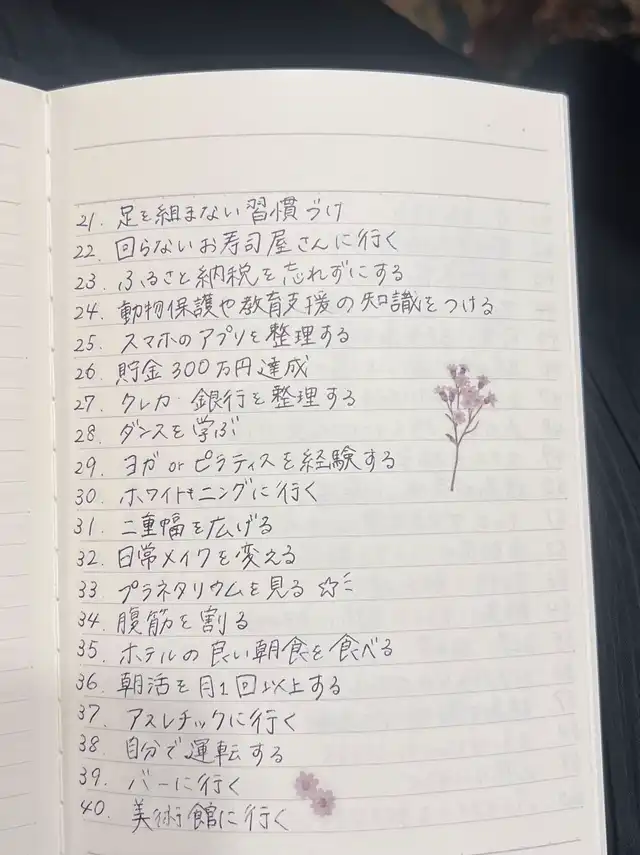 21. 足を組まない習慣づけ
22. 回らないお寿司屋さんに行く
23. ふるさと納税を忘れずにする
24. 動物保護や教育支援の知識をつける
25. スマホのアプリを整理する
26. 貯金300万円達成
27. クレカ・銀行を整理する
28. ダンスを学ぶ
29. ヨガorピラティスを経験する
30. ホワイトモニングに行く
31. 二重幅を広げる
32. 日常メイクを変える
33. プラネタリウムを見る ☆
34. 腹筋を割る
35. ホテルの良い朝食を食べる
36. 朝活を月1回以上する
37. アスレチックに行く
38. 自分で運転する
39. バーに行く
40. 美術館に行く